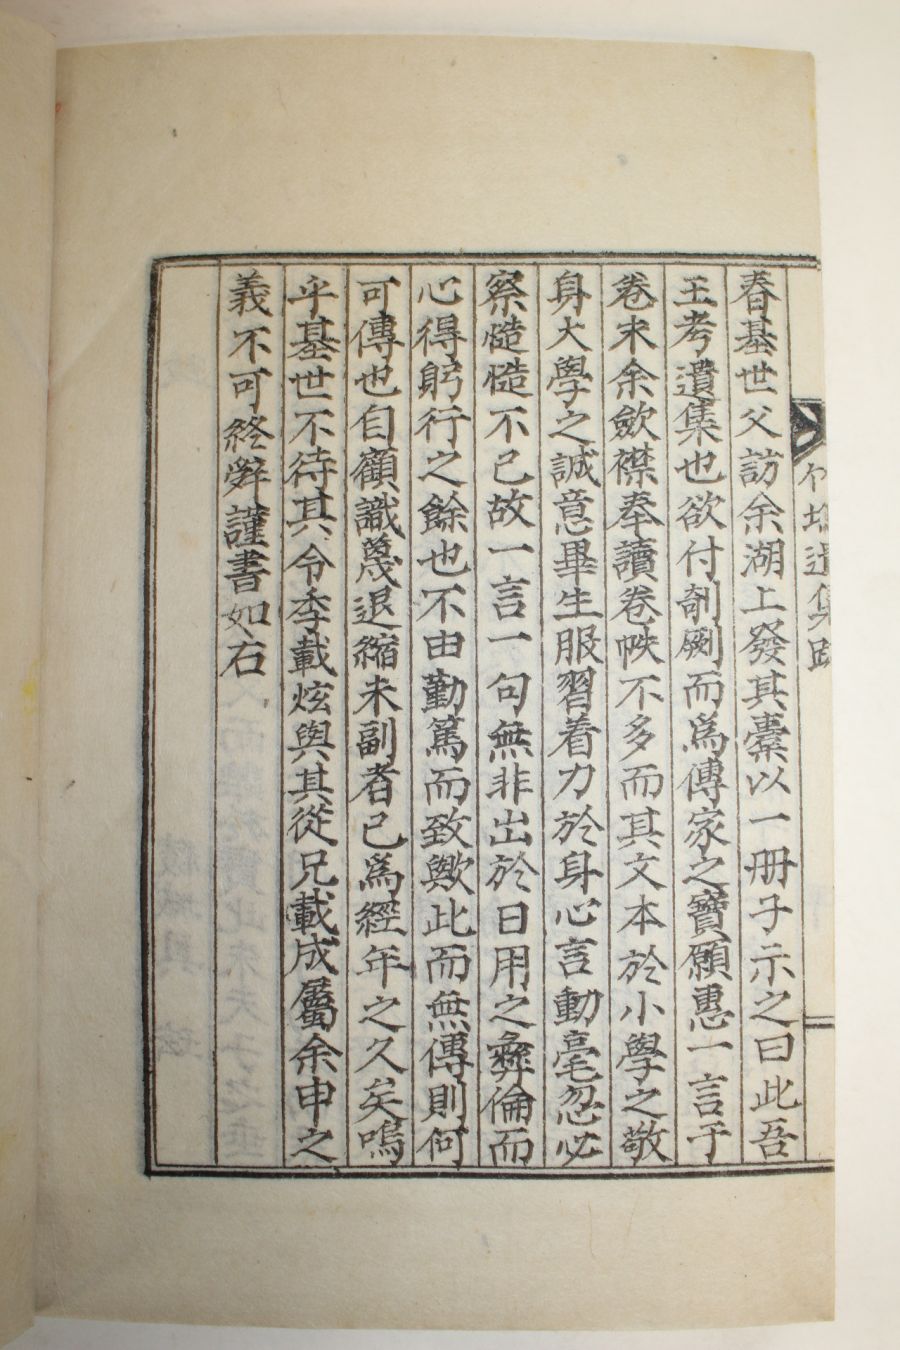 遺集跋
春基世父訪余湖上發其橐以一冊子示之曰此吾
王考遺集也欲付剞劂而爲傳家之寶願惠一言于
卷末余斂襟奉讀卷帙不多而其文本於小學之敬
身大學之誠意畢生服習着力於身心言動毫忽必
察慥慥不已故一言一句無非出於日用之彛倫而
心得躬行之餘也不由勤篤而致歟此而無傳則何
可傳也自顧識蔑退縮未副者已爲經年之久矣嗚
乎基世不待其令季載炫與其從兄載成屬余申之
義不可終辤謹書如右